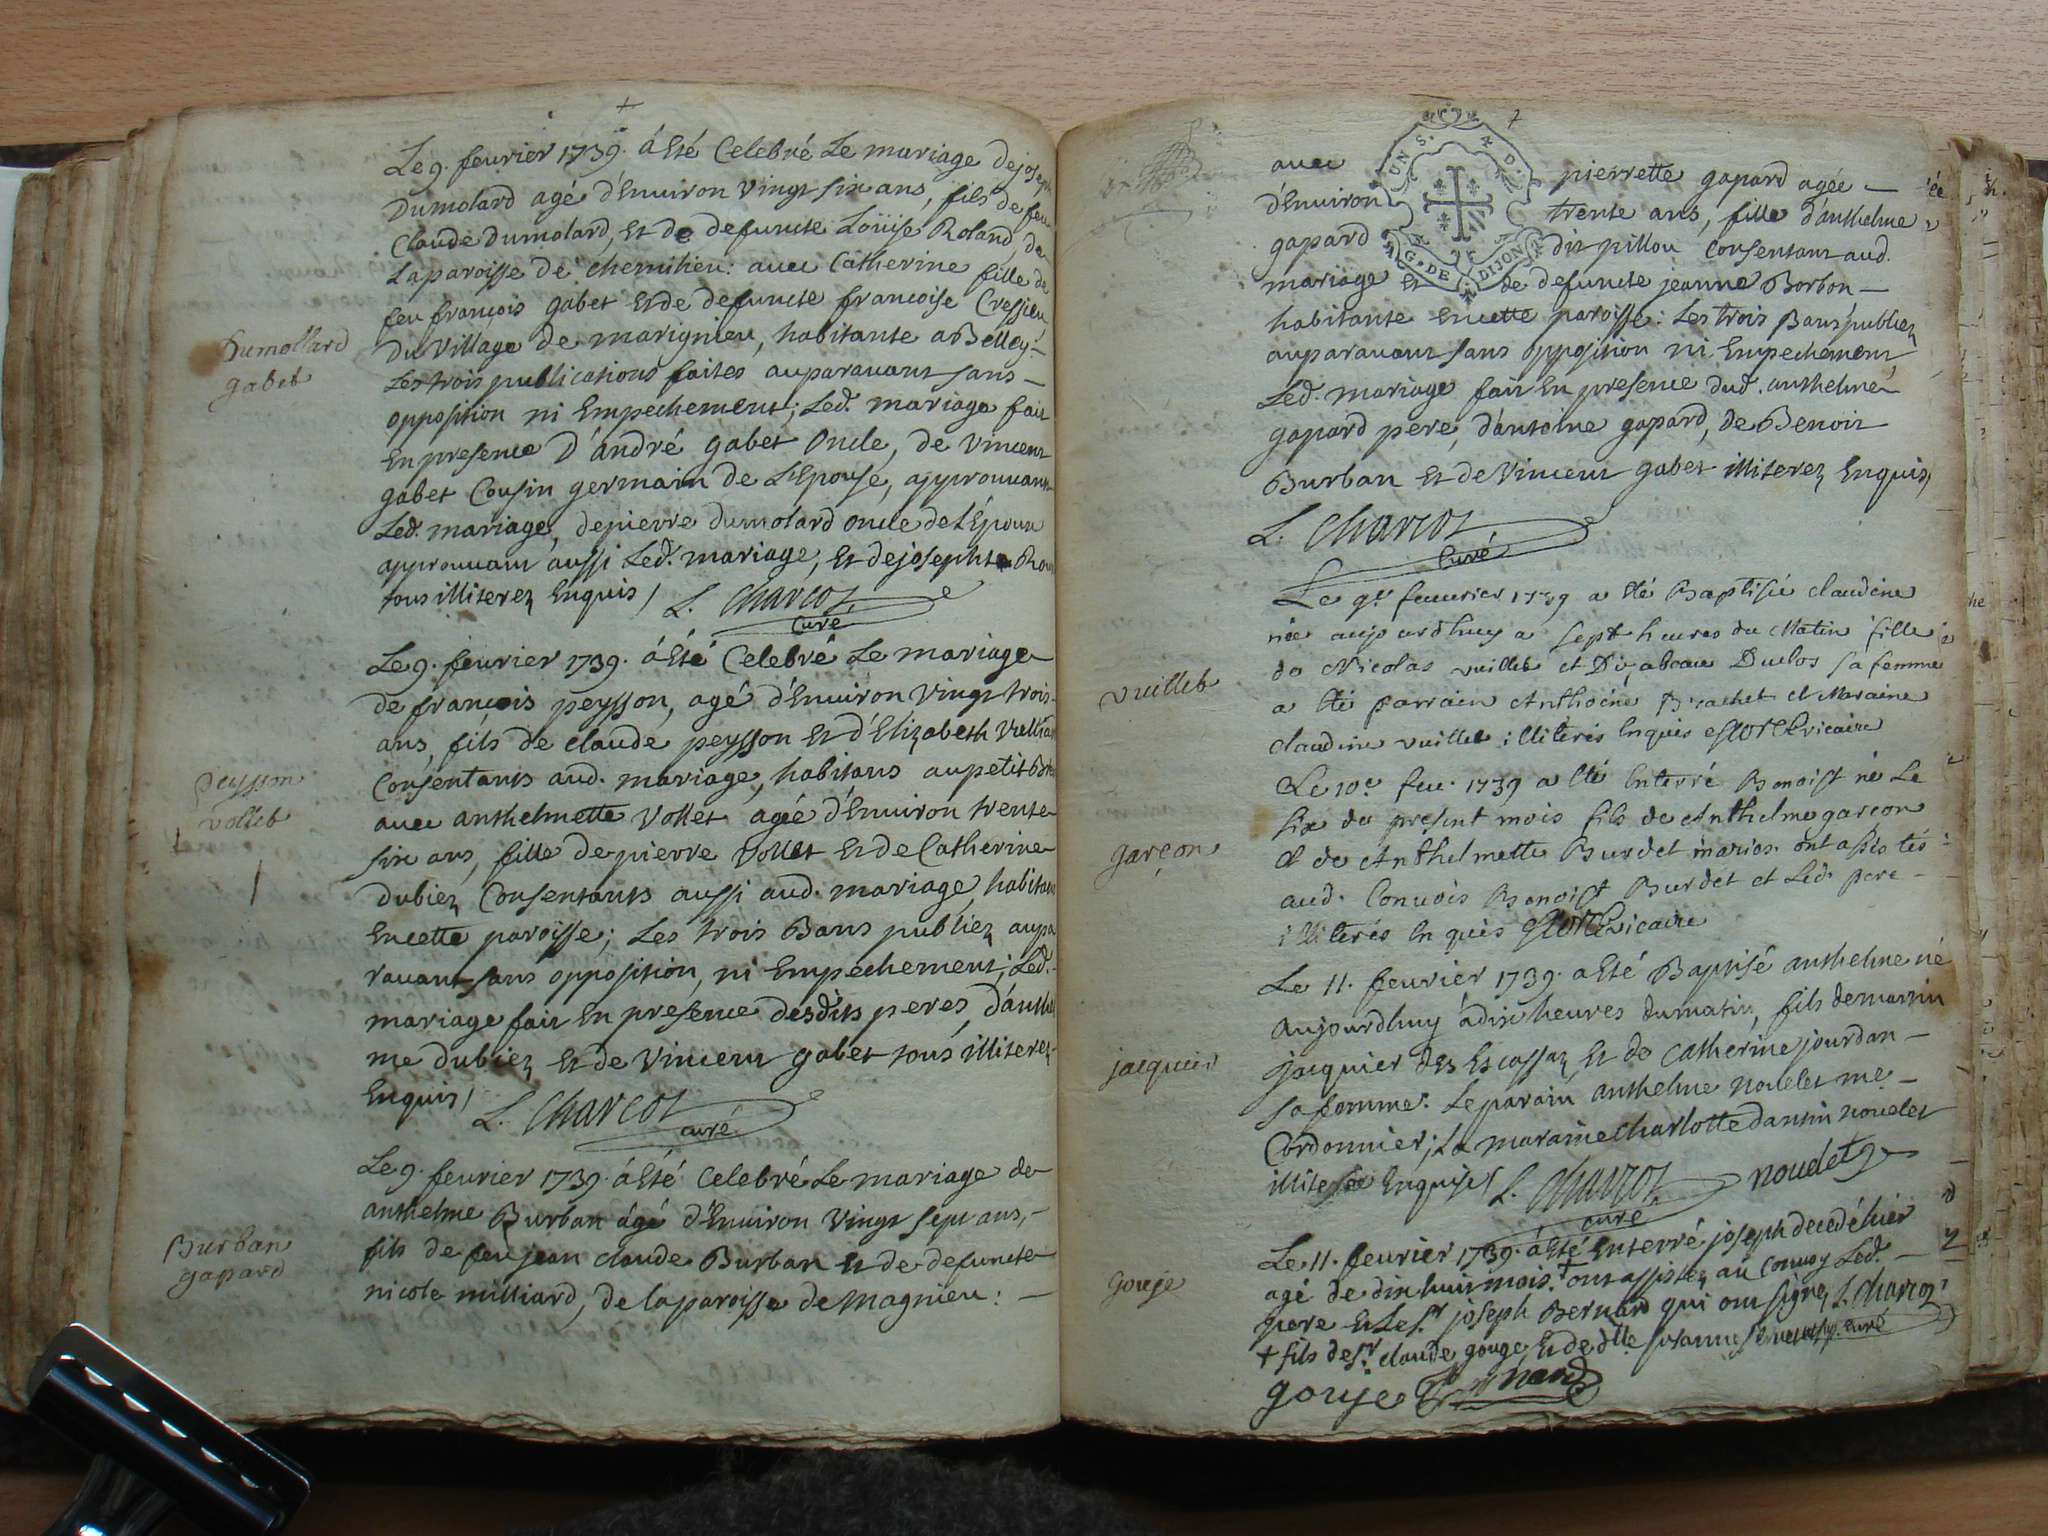 Le 9. feurier 1739. á Eté Celebré Le mariage de joseph
Dumolard agé d'Enuiron Vingt six ans, fils de feu
Claude Dumolard, Et de defuncte Loüise Roland, de
Laparoisse de chemilieu: auec Catherine fille de
feu françois gabet Et de defuncte françoise Cressieu
Du Village de marignieu, habitante a Belley –
Les trois publications faites auparauant sans –
opposition ni Empechement; Led. mariage fait
En presence D'andré gabet Oncle, de Vincent
gabet Cousin germain de L'Epouse, approuuant
Led. mariage, de pierre dumolard oncle de L'Epoux
approuuant aussi Led. mariage, Et de joseph
tous illiterez Enquis/ L. Charcot
Curé
Dumollard
gabet
Le 9. feurier 1739. á Eté Celebré Le mariage
de françois peysson, agé d'Enuiron Vingt trois
ans, fils de claude peysson Et d'Elizabeth
Consentants aud. mariage, habitans au petit
auec anthelmette Vollet agée d'Enuiron trente
six ans, fille de pierre Vollet Et de Catherine
dubiez Consentants aussi aud. mariage, habitans
En cette paroisse; Les trois Bans publiez aupa
rauant sans opposition, ni Empechement; Led. –
mariage fait En presence desdits peres, d'anthel
me dubiez Et de Vincent gabet tous illiterez –
Enquis/ L. Charcot
curé
Peysson
vollet
Le 9. feurier 1739. á Eté Celebré Le mariage de
anthelme Burban ágé d'Enuiron Vingt sept ans, –
fils de feu jean claude Burban Et de defuncte
nicole milliard, de la paroisse de Magnieu: –
Burban
gapard
7
UN S. 4 D.
G. DE DIJON
auec pierrette gapard agée –
d'Enuiron trente ans, fille d'anthelme
gapard dit pillou Consentant aud.
mariage Et de defuncte jeanne Borbon –
habitante En cette paroisse: Les trois Bans publiez
auparauant sans opposition ni Empechement,
Led. mariage fait En presence dud. anthelme
gapard pere, d'antoine gapard, de Benoit
Burban Et de Vincent gabet illiterez Enquis/
L. Charcot
Curé
Le 9e feuurier 1739 a Eté Baptisée claudine
née aujourdhuy a sept heures du Matin fille
de Nicolas vuillet et Duclos sa femme
a été parrain Anthoine Brachet et Maraine
claudine vuillet illiterés Enquis vicaire
vuillet
Le 10e feu. 1739 a Eté Enterré Benoist né Le
six du present mois fils de Anthelme garcon
et de Anthelmette Burdet mariés. ont assistés
aud. Conuois Benoist Burdet et Led. pere –
illiterés Enquis vicaire
garçon
Le 11. feurier 1739. a Eté Baptisé anthelme né
aujourdhuy á dix heures du matin, fils de martin
jacquier des Escassaz Et de Catherine jourdan –
sa femme. Le parain anthelme noudet me. –
Cordonnier; La maraine charlotte dantin noudet
illiterée Enquise/ L. Charcot noudet
curé
jacquier
Le 11. feurier 1739. á Eté Enterré joseph decedé hier
agé de dix huit mois. + ont assistez au Conuoy Led. –
pere Et Le sr. joseph Bernard qui ont signez L. Charcot
+ fils de sr. claude gouge Et de dlle susanne curé
gouje Bernard
gouje